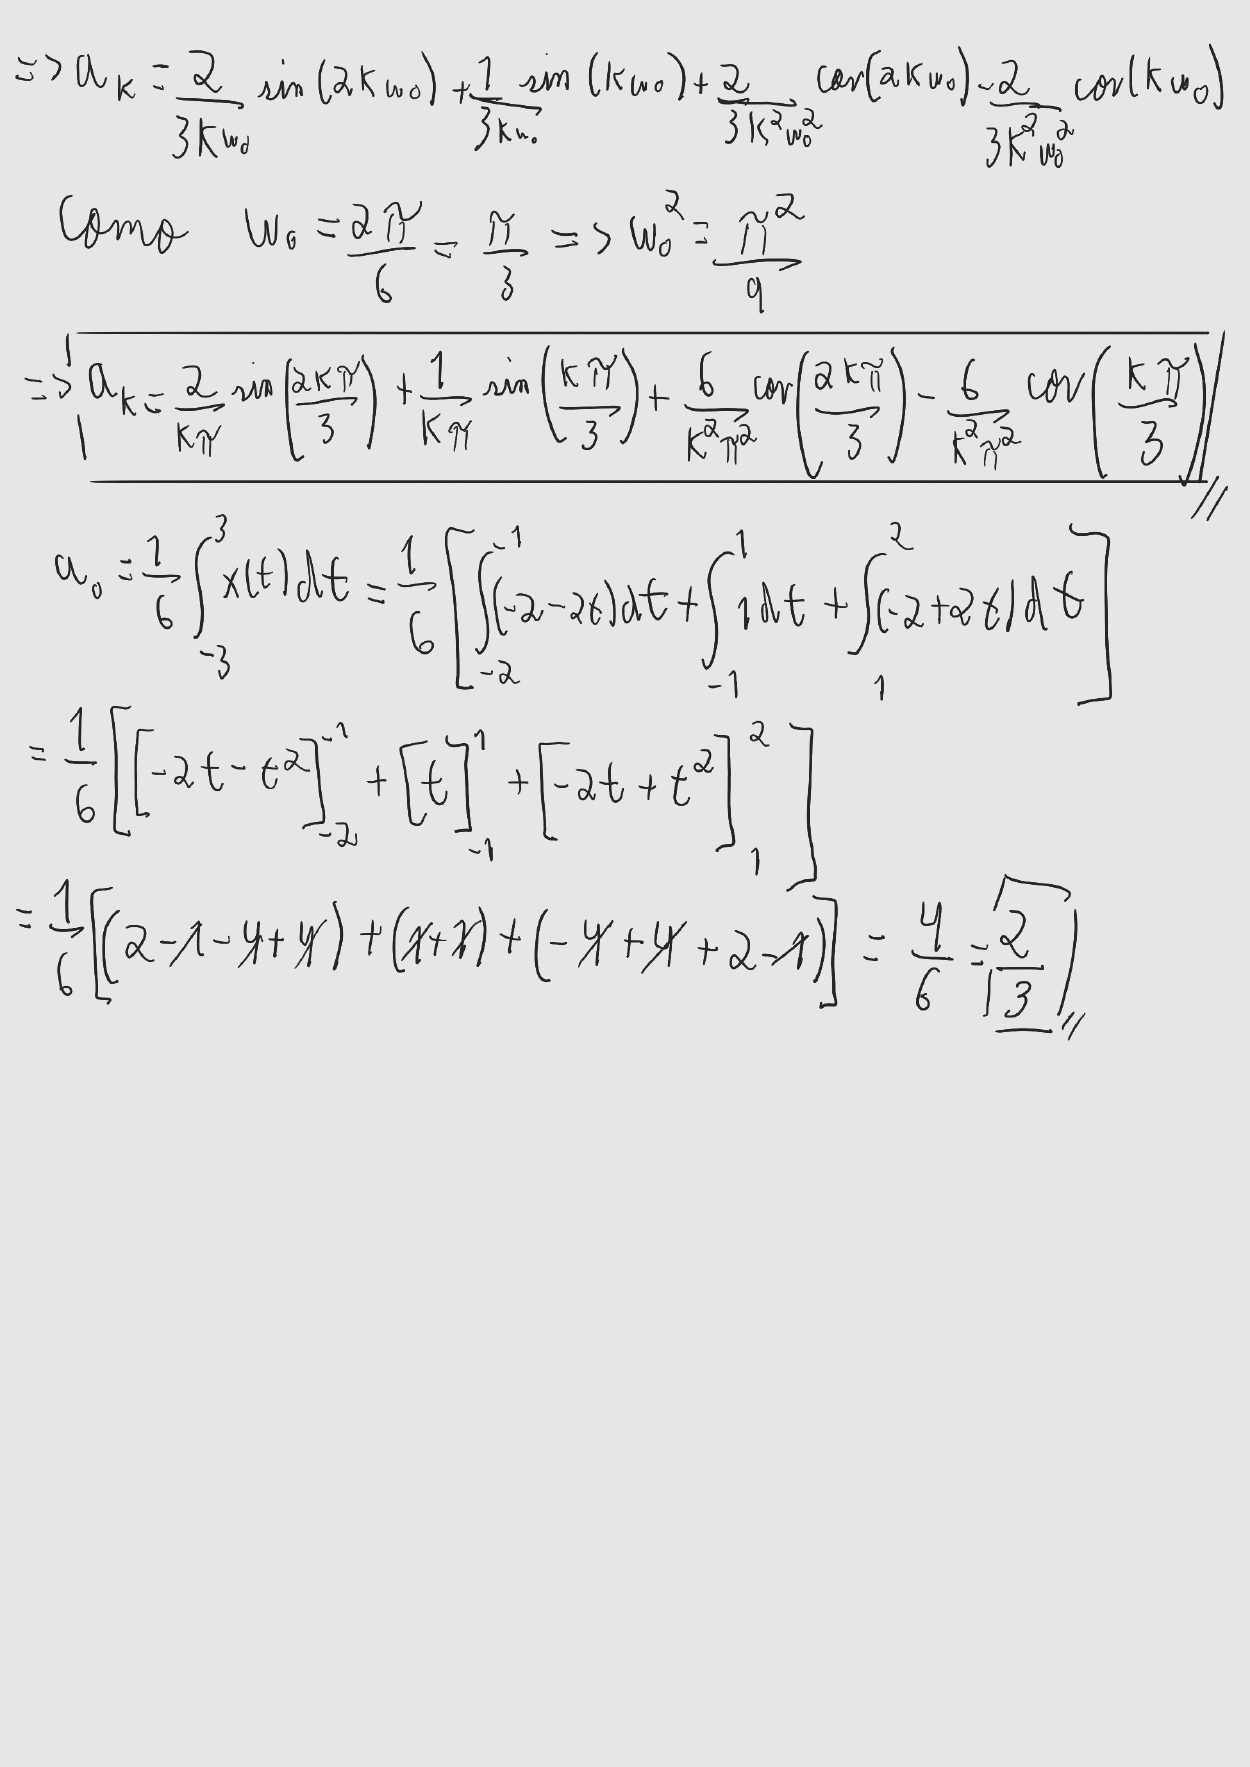 => a_k = 2/(3kw₀) sin(2kw₀) + 1/(3kw₀) sin(kw₀) + 2/(3k²w₀²) cos(2kw₀) - 2/(3k²w₀²) cos(kw₀)
Como w₀ = 2π/6 = π/3 => w₀² = π²/9
=> a_k = 2/(kπ) sin(2kπ/3) + 1/(kπ) sin(kπ/3) + 6/(k²π²) cos(2kπ/3) - 6/(k²π²) cos(kπ/3) //
a₀ = 1/6 ∫_{-3}^{3} x(t)dt = 1/6 [∫_{-2}^{-1} (-2-2t)dt + ∫_{-1}^{1} 1dt + ∫_{1}^{2} (-2+2t)dt]
= 1/6 [[-2t-t²]_{-2}^{-1} + [t]_{-1}^{1} + [-2t+t²]_{1}^{2}]
= 1/6 [(2-1-4+4) + (1+1) + (-4+4+2-1)] = 4/6 = 2/3 //